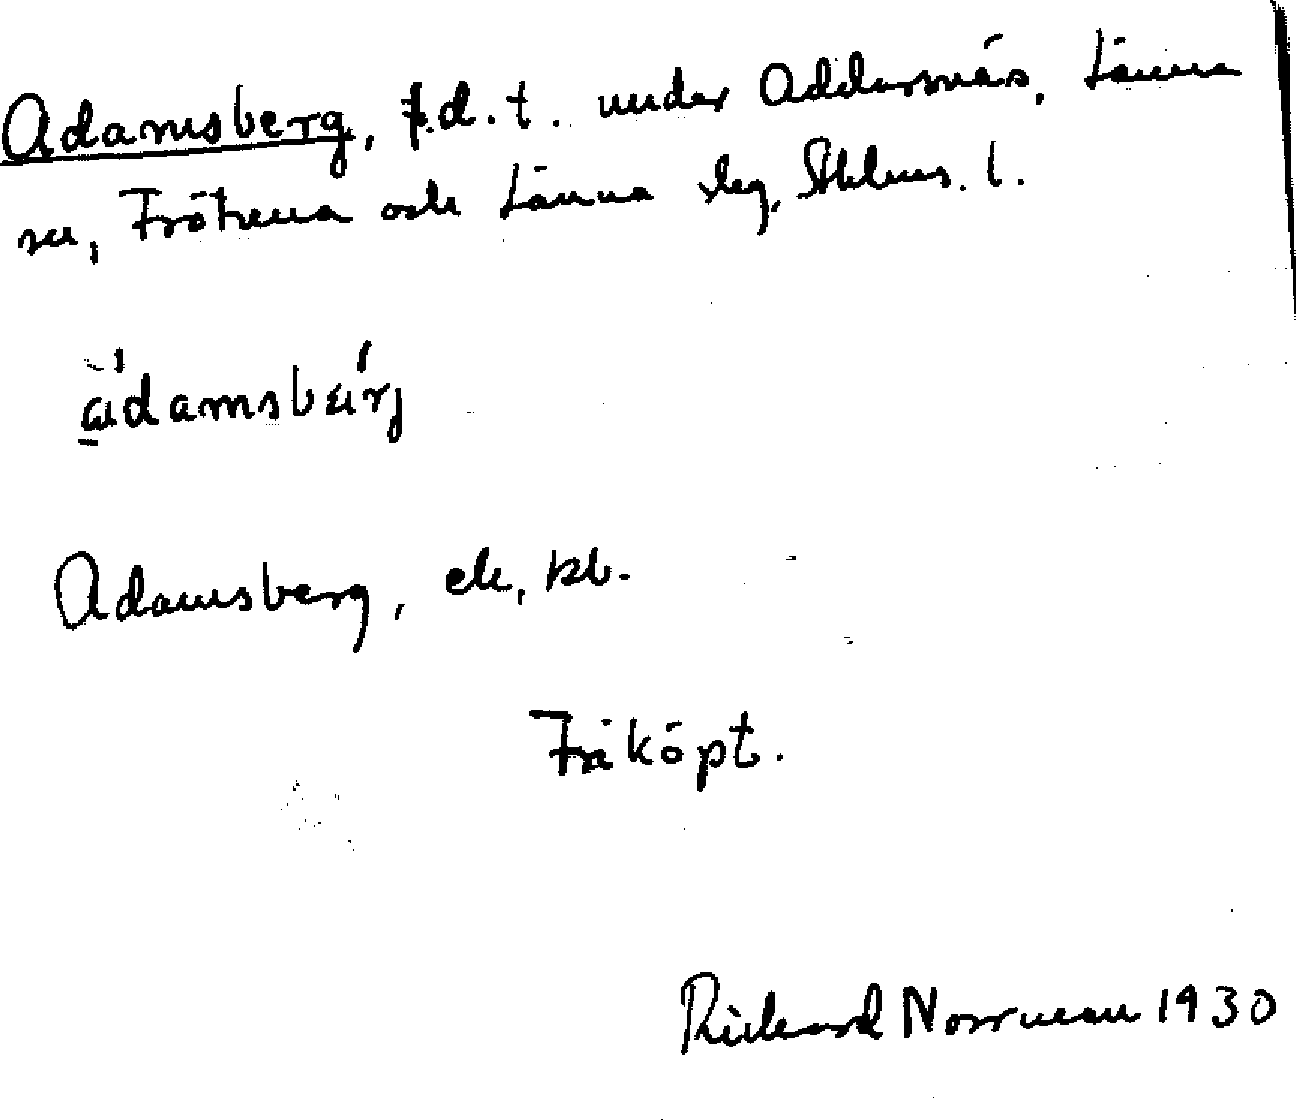 Adamsberg, f.d. t. under Addarsnäs, Länna
sn, Frötuna och Länna slg, Sthlms. l.
ádamsbærj
Adamsberg, ek, kb.
Friköpt.
Richard Norrman 1930